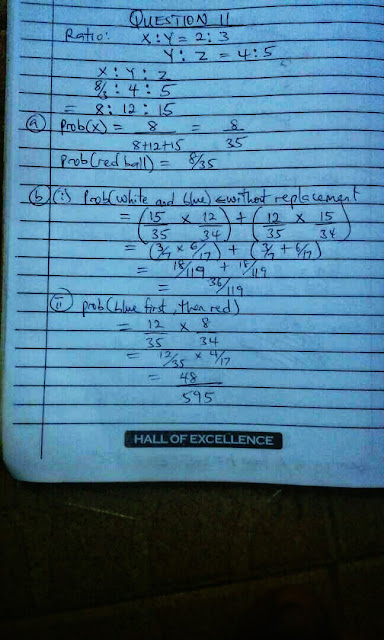 QUESTION 11
Ratio: X:Y = 2:3
Y:Z = 4:5
X:Y:Z
8/3:4:5
= 8:12:15
(a) Prob(x) = 8/(8+12+15) = 8/35
Prob(red ball) = 8/35
(b)(i) Prob(white and blue) ← without replacement
= (15/35 × 12/34) + (12/35 × 15/34)
= (3/7 × 6/17) + (3/7 + 6/17)
= 18/119 + 18/119
= 36/119
(ii) prob(blue first, then red)
= 12/35 × 8/34
= 12/35 × 4/17
= 48/595
HALL OF EXCELLENCE